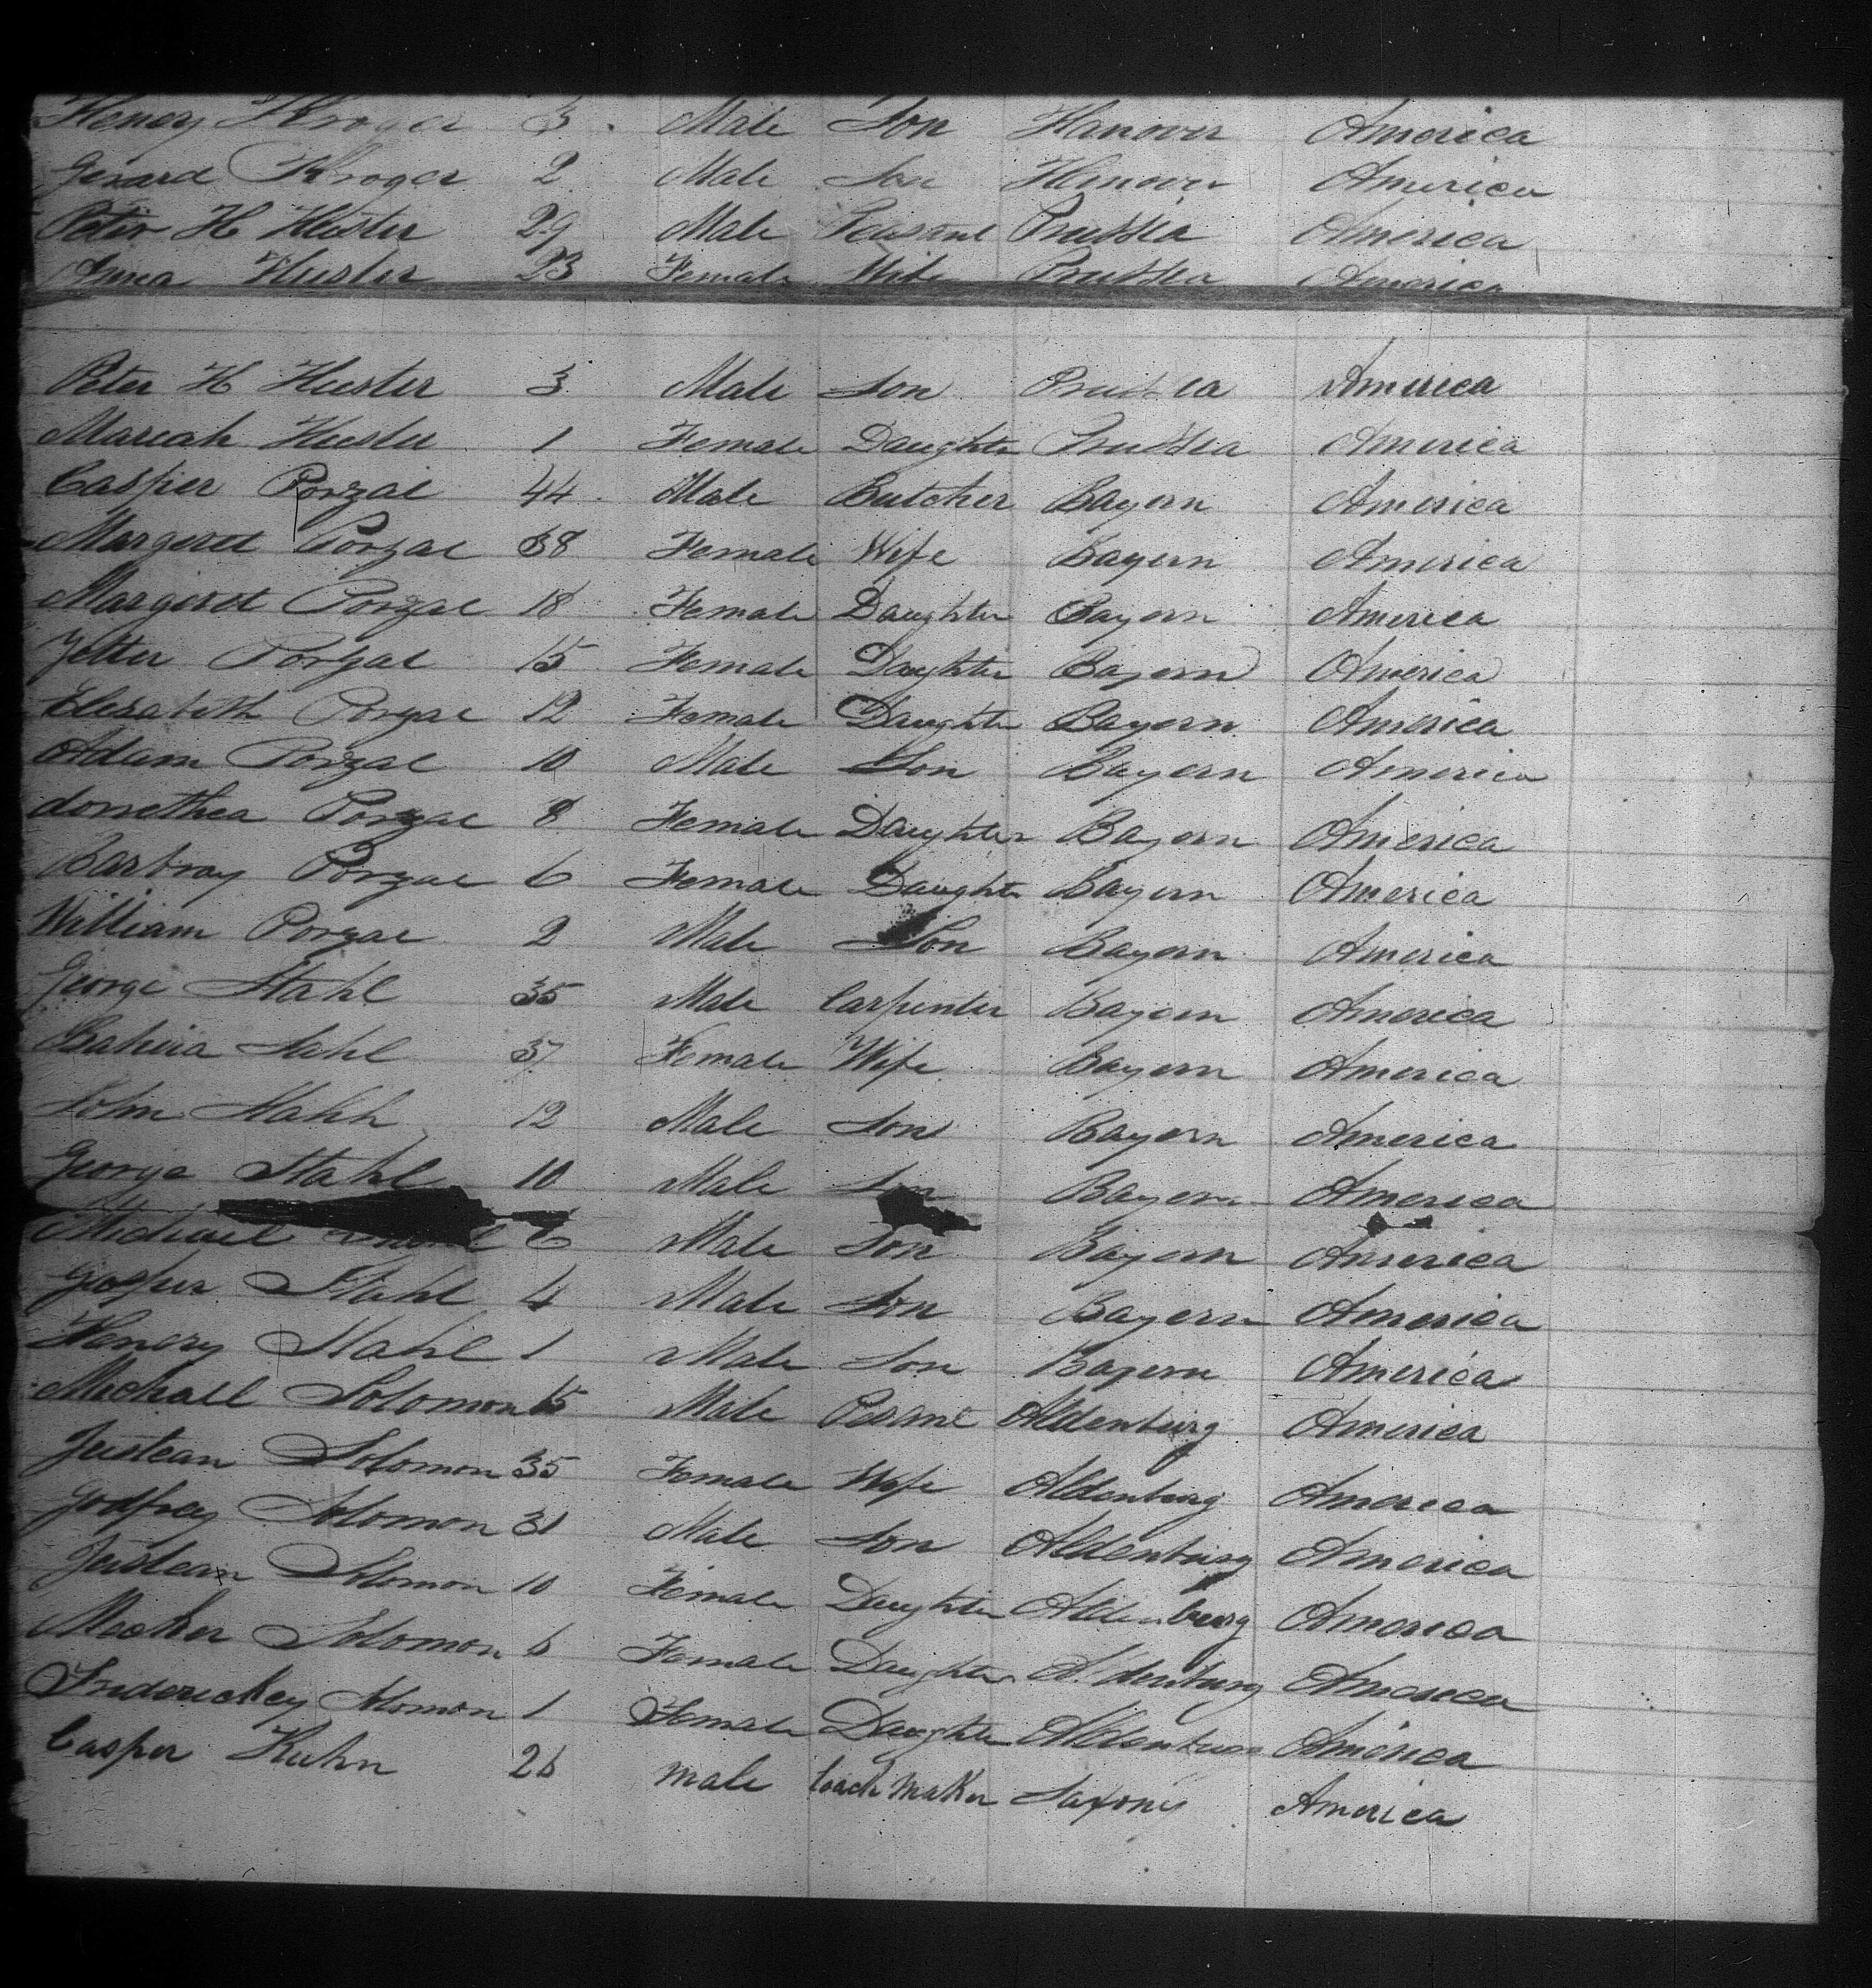 Henery Kroger 3 Male Son Hanover America
Gerard Kroger 2 Male Son Hanover America
Peter H Huster 29 Male Peasant Prussia America
Anna Huster 23 Female Wife Prussia America
Peter H Huster 3 Male Son Prussia America
Mariah Huster 1 Female Daughter Prussia America
Casper Porzae 44 Male Butcher Bayern America
Margeret Porzae 38 Female Wife Bayern America
Margeret Porzae 18 Female Daughter Bayern America
Jetter Porzae 15 Female Daughter Bayern America
Elesabeth Porzae 12 Female Daughter Bayern America
Adam Porzae 10 Male Son Bayern America
dorrethea Porzae 8 Female Daughter Bayern America
Barbray Porzae 6 Female Daughter Bayern America
William Porzae 2 Male Son Bayern America
George Stahl 35 Male Carpenter Bayern America
Stahl 37 Female Wife Bayern America
John Stahh 12 Male Son Bayern America
George Stahl 10 Male Son Bayern America
Michael 6 Male Son Bayern America
Gosper Stahl 4 Male Son Bayern America
Henery Stahl 1 Male Son Bayern America
Michall Solomon Male Pesant Aldenburg America
Justean Solomon 35 Female Wife Aldenburg America
Godfrey Solomon 31 Male Son Aldenburg America
Justean Solomon 10 Female Daughter Aldenburg America
Solomon 6 Female Daughter Aldenburg America
Frederickey Solomon 1 Female Daughter Aldenburg America
Casper Kuhn 26 male Coach maker Saxony America